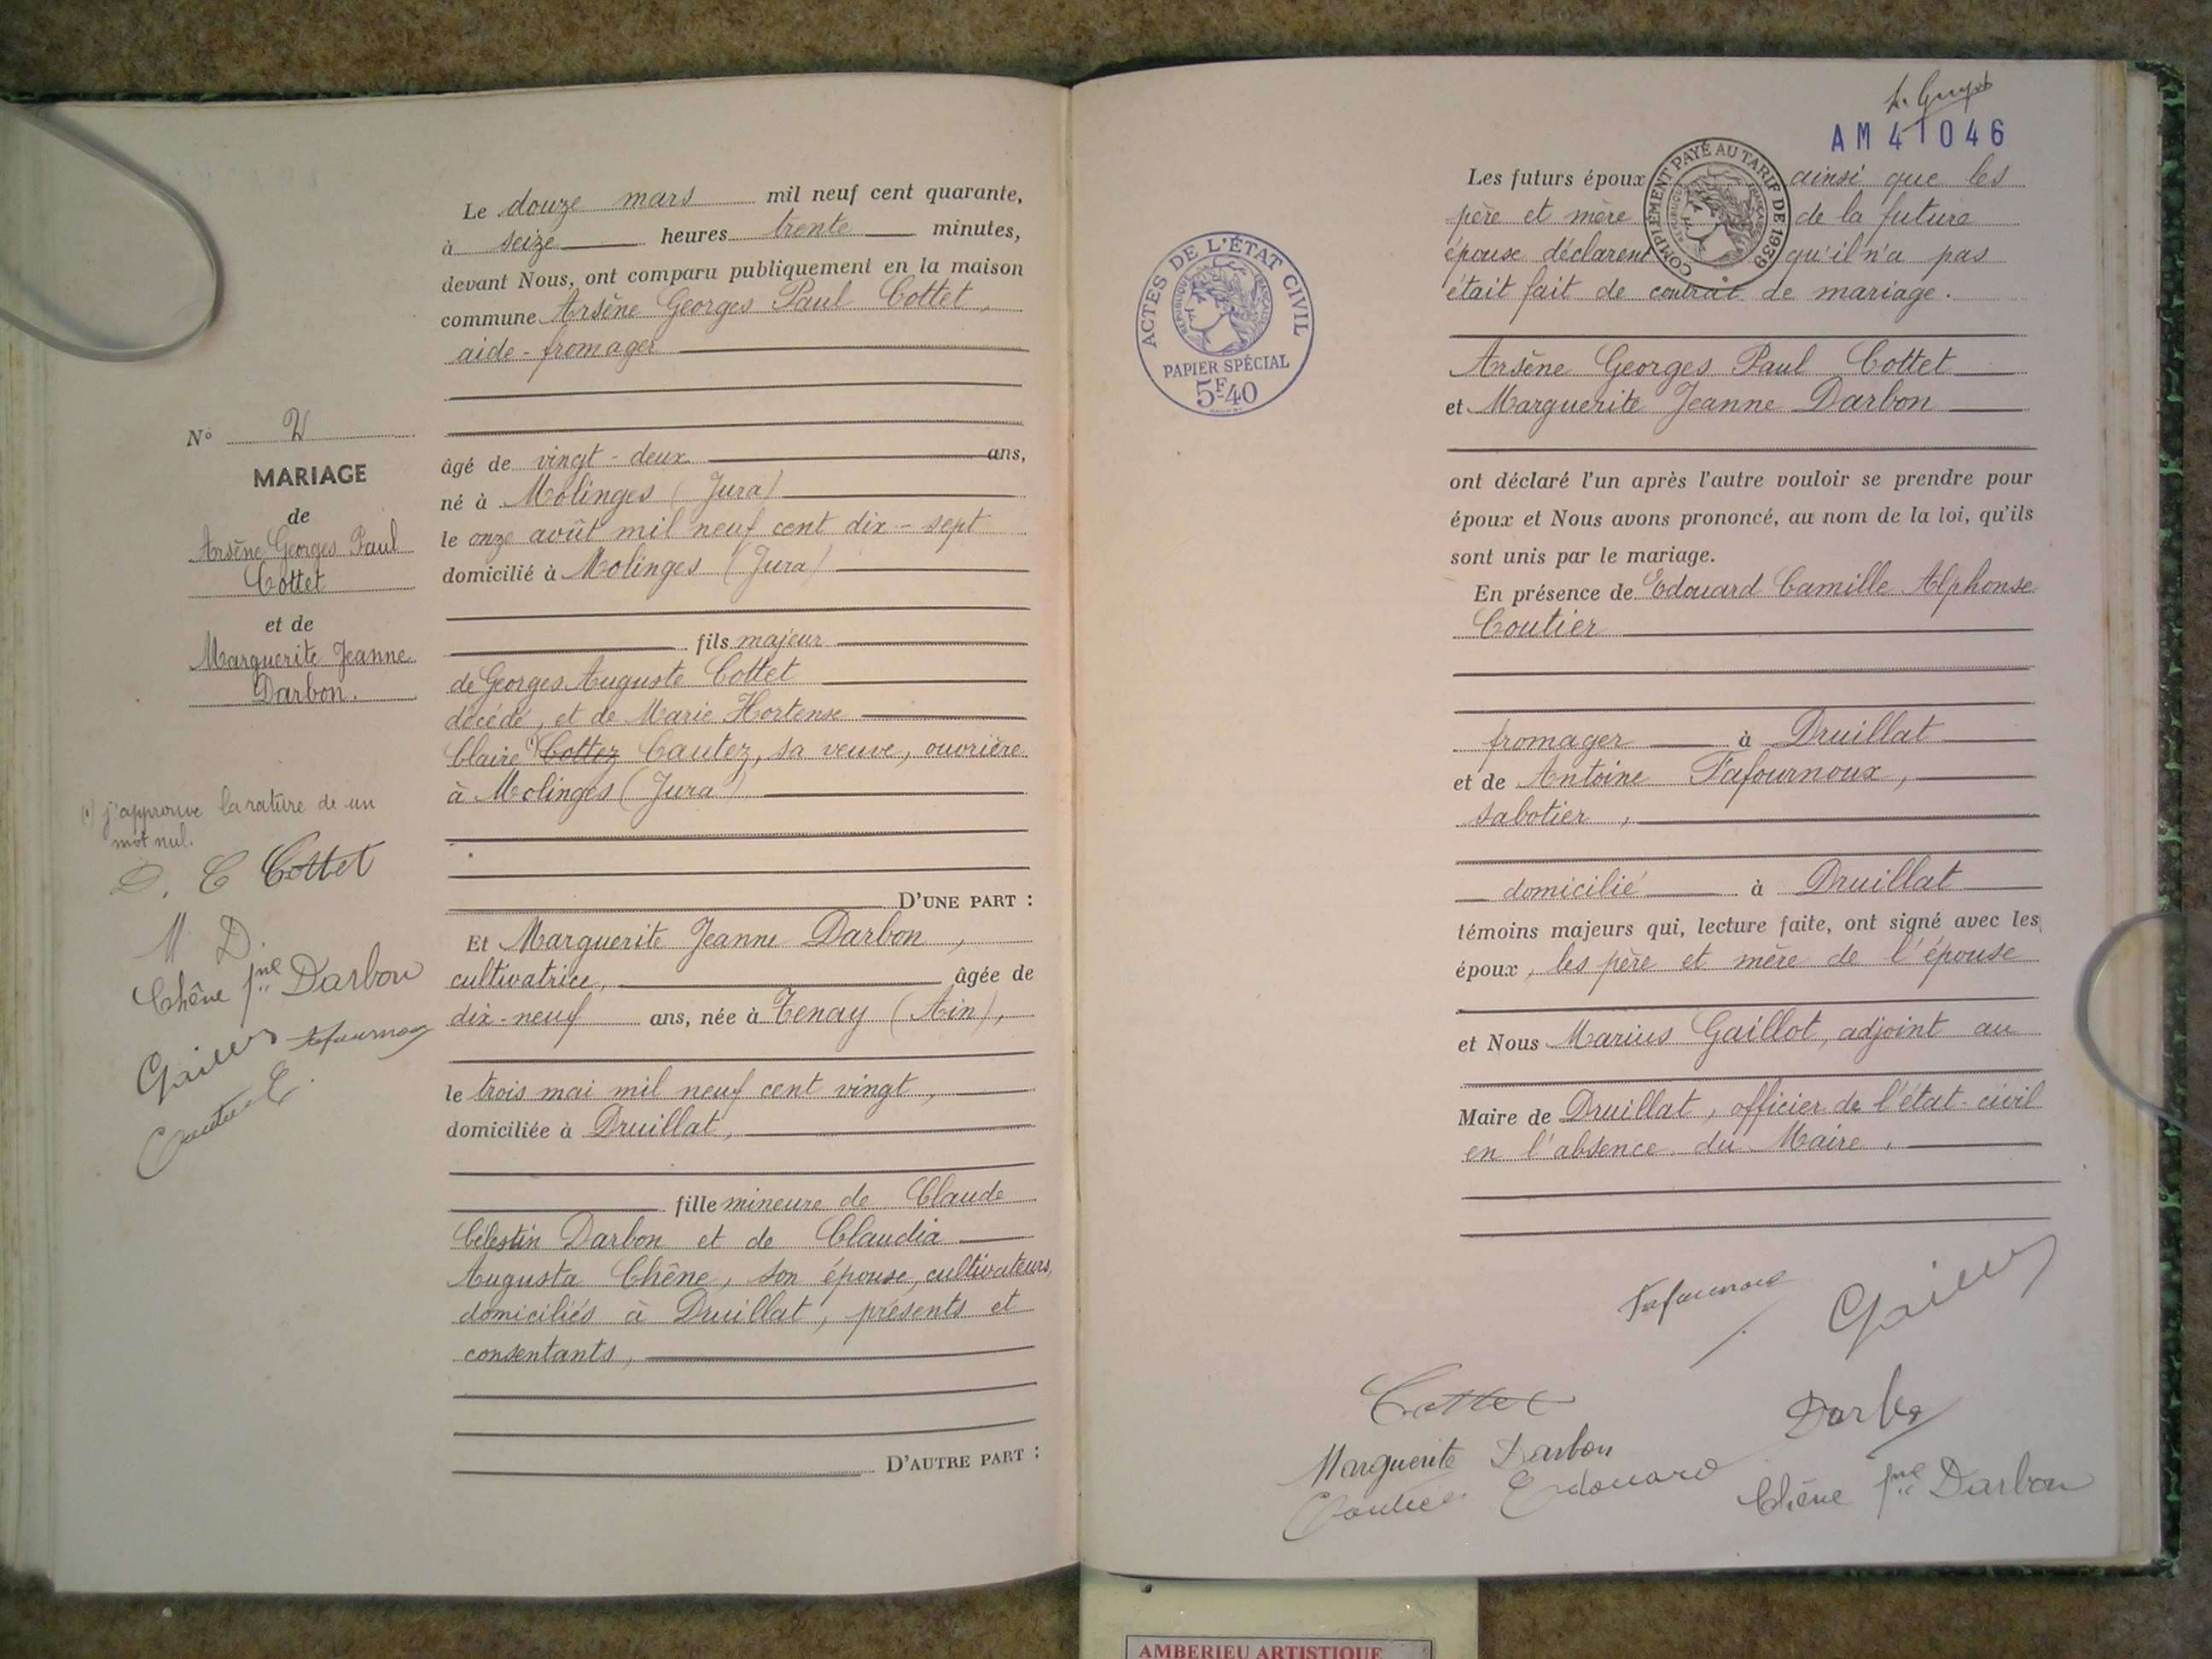 N° 2
MARIAGE
de
Arsène Georges Paul
Cottet
et de
Marguerite Jeanne
Darbon.
(1) j'approuve la rature de un
mot nul.
D. C Cottet
M D.
Chêne fne Darbon
Le douze mars mil neuf cent quarante,
à seize heures trente minutes,
devant Nous, ont comparu publiquement en la maison
commune Arsène Georges Paul Cottet,
aide-fromager
âgé de vingt-deux ans,
né à Molinges (Jura)
le onze août mil neuf cent dix-sept
domicilié à Molinges (Jura)
fils majeur
de Georges Auguste Cottet
décédé, et de Marie Hortense
Claire (1) Cottez Cautez, sa veuve, ouvrière
à Molinges (Jura)
D'UNE PART :
Et Marguerite Jeanne Darbon,
cultivatrice, âgée de
dix-neuf ans, née à Tenay (Ain),
le trois mai mil neuf cent vingt,
domiciliée à Druillat,
fille mineure de Claude
Célestin Darbon et de Claudia
Augusta Chêne, son épouse, cultivateurs,
domiciliés à Druillat, présents et
consentants,
D'AUTRE PART :
ACTES DE L'ÉTAT CIVIL
RÉPUBLIQUE FRANÇAISE
PAPIER SPÉCIAL
5F40
AM 41046
COMPLEMENT PAYÉ AU TARIF DE 1939
Les futurs époux ainsi que les
père et mère de la future
épouse déclarent qu'il n'a pas
était fait de contrat de mariage.
Arsène Georges Paul Cottet
et Marguerite Jeanne Darbon
ont déclaré l'un après l'autre vouloir se prendre pour
époux et Nous avons prononcé, au nom de la loi, qu'ils
sont unis par le mariage.
En présence de Edouard Camille Alphonse
Coutier
fromager à Druillat
et de Antoine Fafournoux,
sabotier,
domicilié à Druillat
témoins majeurs qui, lecture faite, ont signé avec les
époux, les père et mère de l'épouse
et Nous Marius Gaillot, adjoint au
Maire de Druillat, officier de l'état-civil
en l'absence du Maire,
Cottet
Darbon
Marguerite Darbon
Edouard
Chêne fne Darbon
AMBERIEU ARTISTIQUE